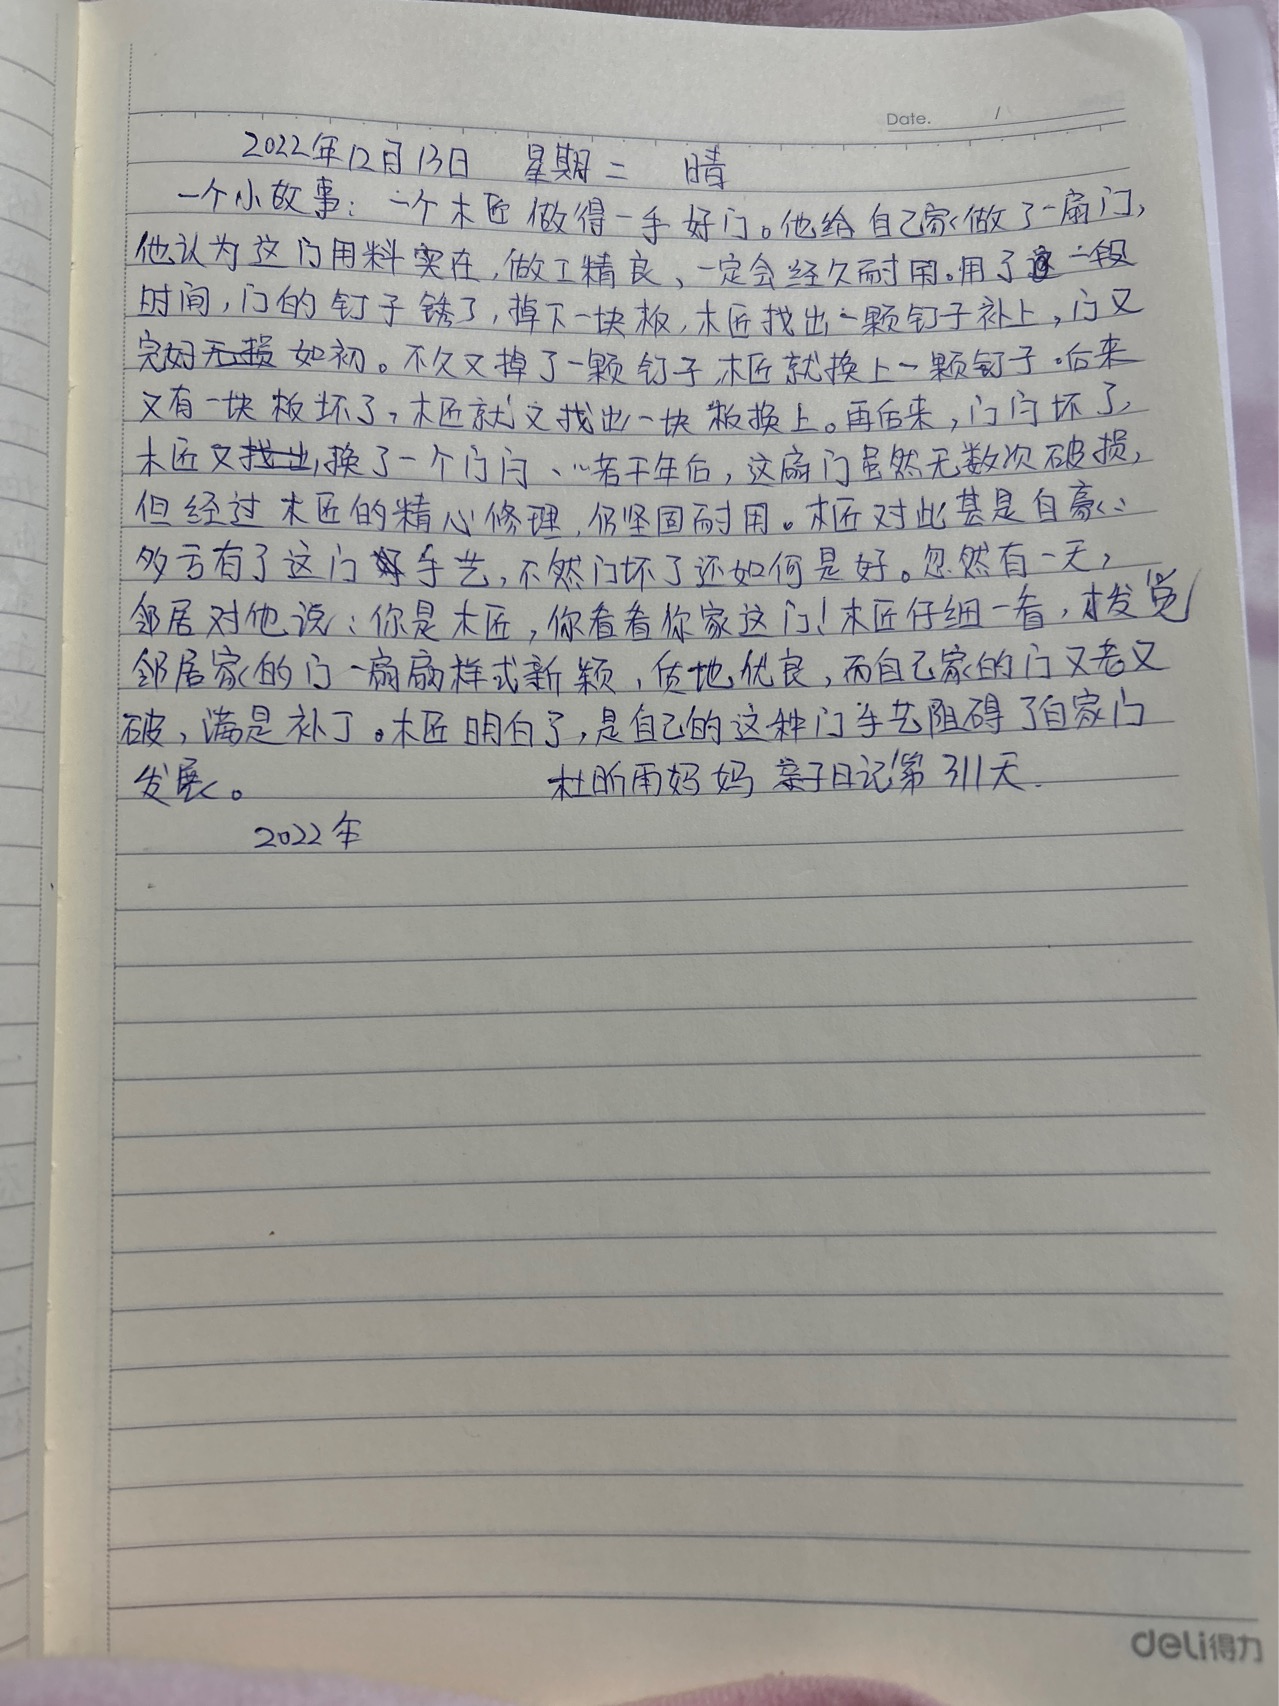 Date. /
2022年12月13日 星期二 晴
一个小故事：一个木匠做得一手好门。他给自己家做了一扇门，
他认为这门用料实在，做工精良、一定会经久耐用。用了一段
时间，门的钉子锈了，掉下一块板，木匠找出一颗钉子补上，门又
完好无损如初。不久又掉了一颗钉子，木匠就换上一颗钉子。后来
又有一块板坏了，木匠就又找出一块板换上。再后来，门闩坏了，
木匠又换了一个门闩、…若干年后，这扇门虽然无数次破损，
但经过木匠的精心修理，仍坚固耐用。木匠对此甚是自豪：
多亏有了这门手艺，不然门坏了还如何是好。忽然有一天，
邻居对他说：你是木匠，你看看你家这门！木匠仔细一看，才发觉
邻居家的门一扇扇样式新颖，质地优良，而自己家的门又老又
破，满是补丁。木匠明白了，是自己的这种门手艺阻碍了自家门
发展。 杜昕雨妈妈 亲子日记第311天.
2022年
deli得力